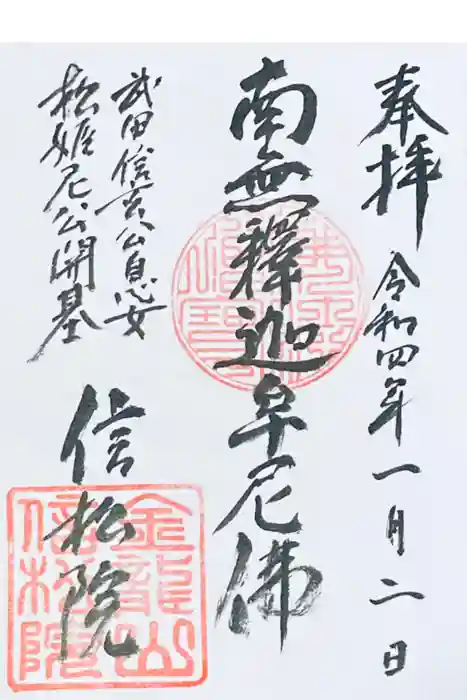 奉拝
令和四年一月二日
南無釋迦牟尼佛
武田信玄公息女
松姫尼公開基
信松院
金龍山
信松院